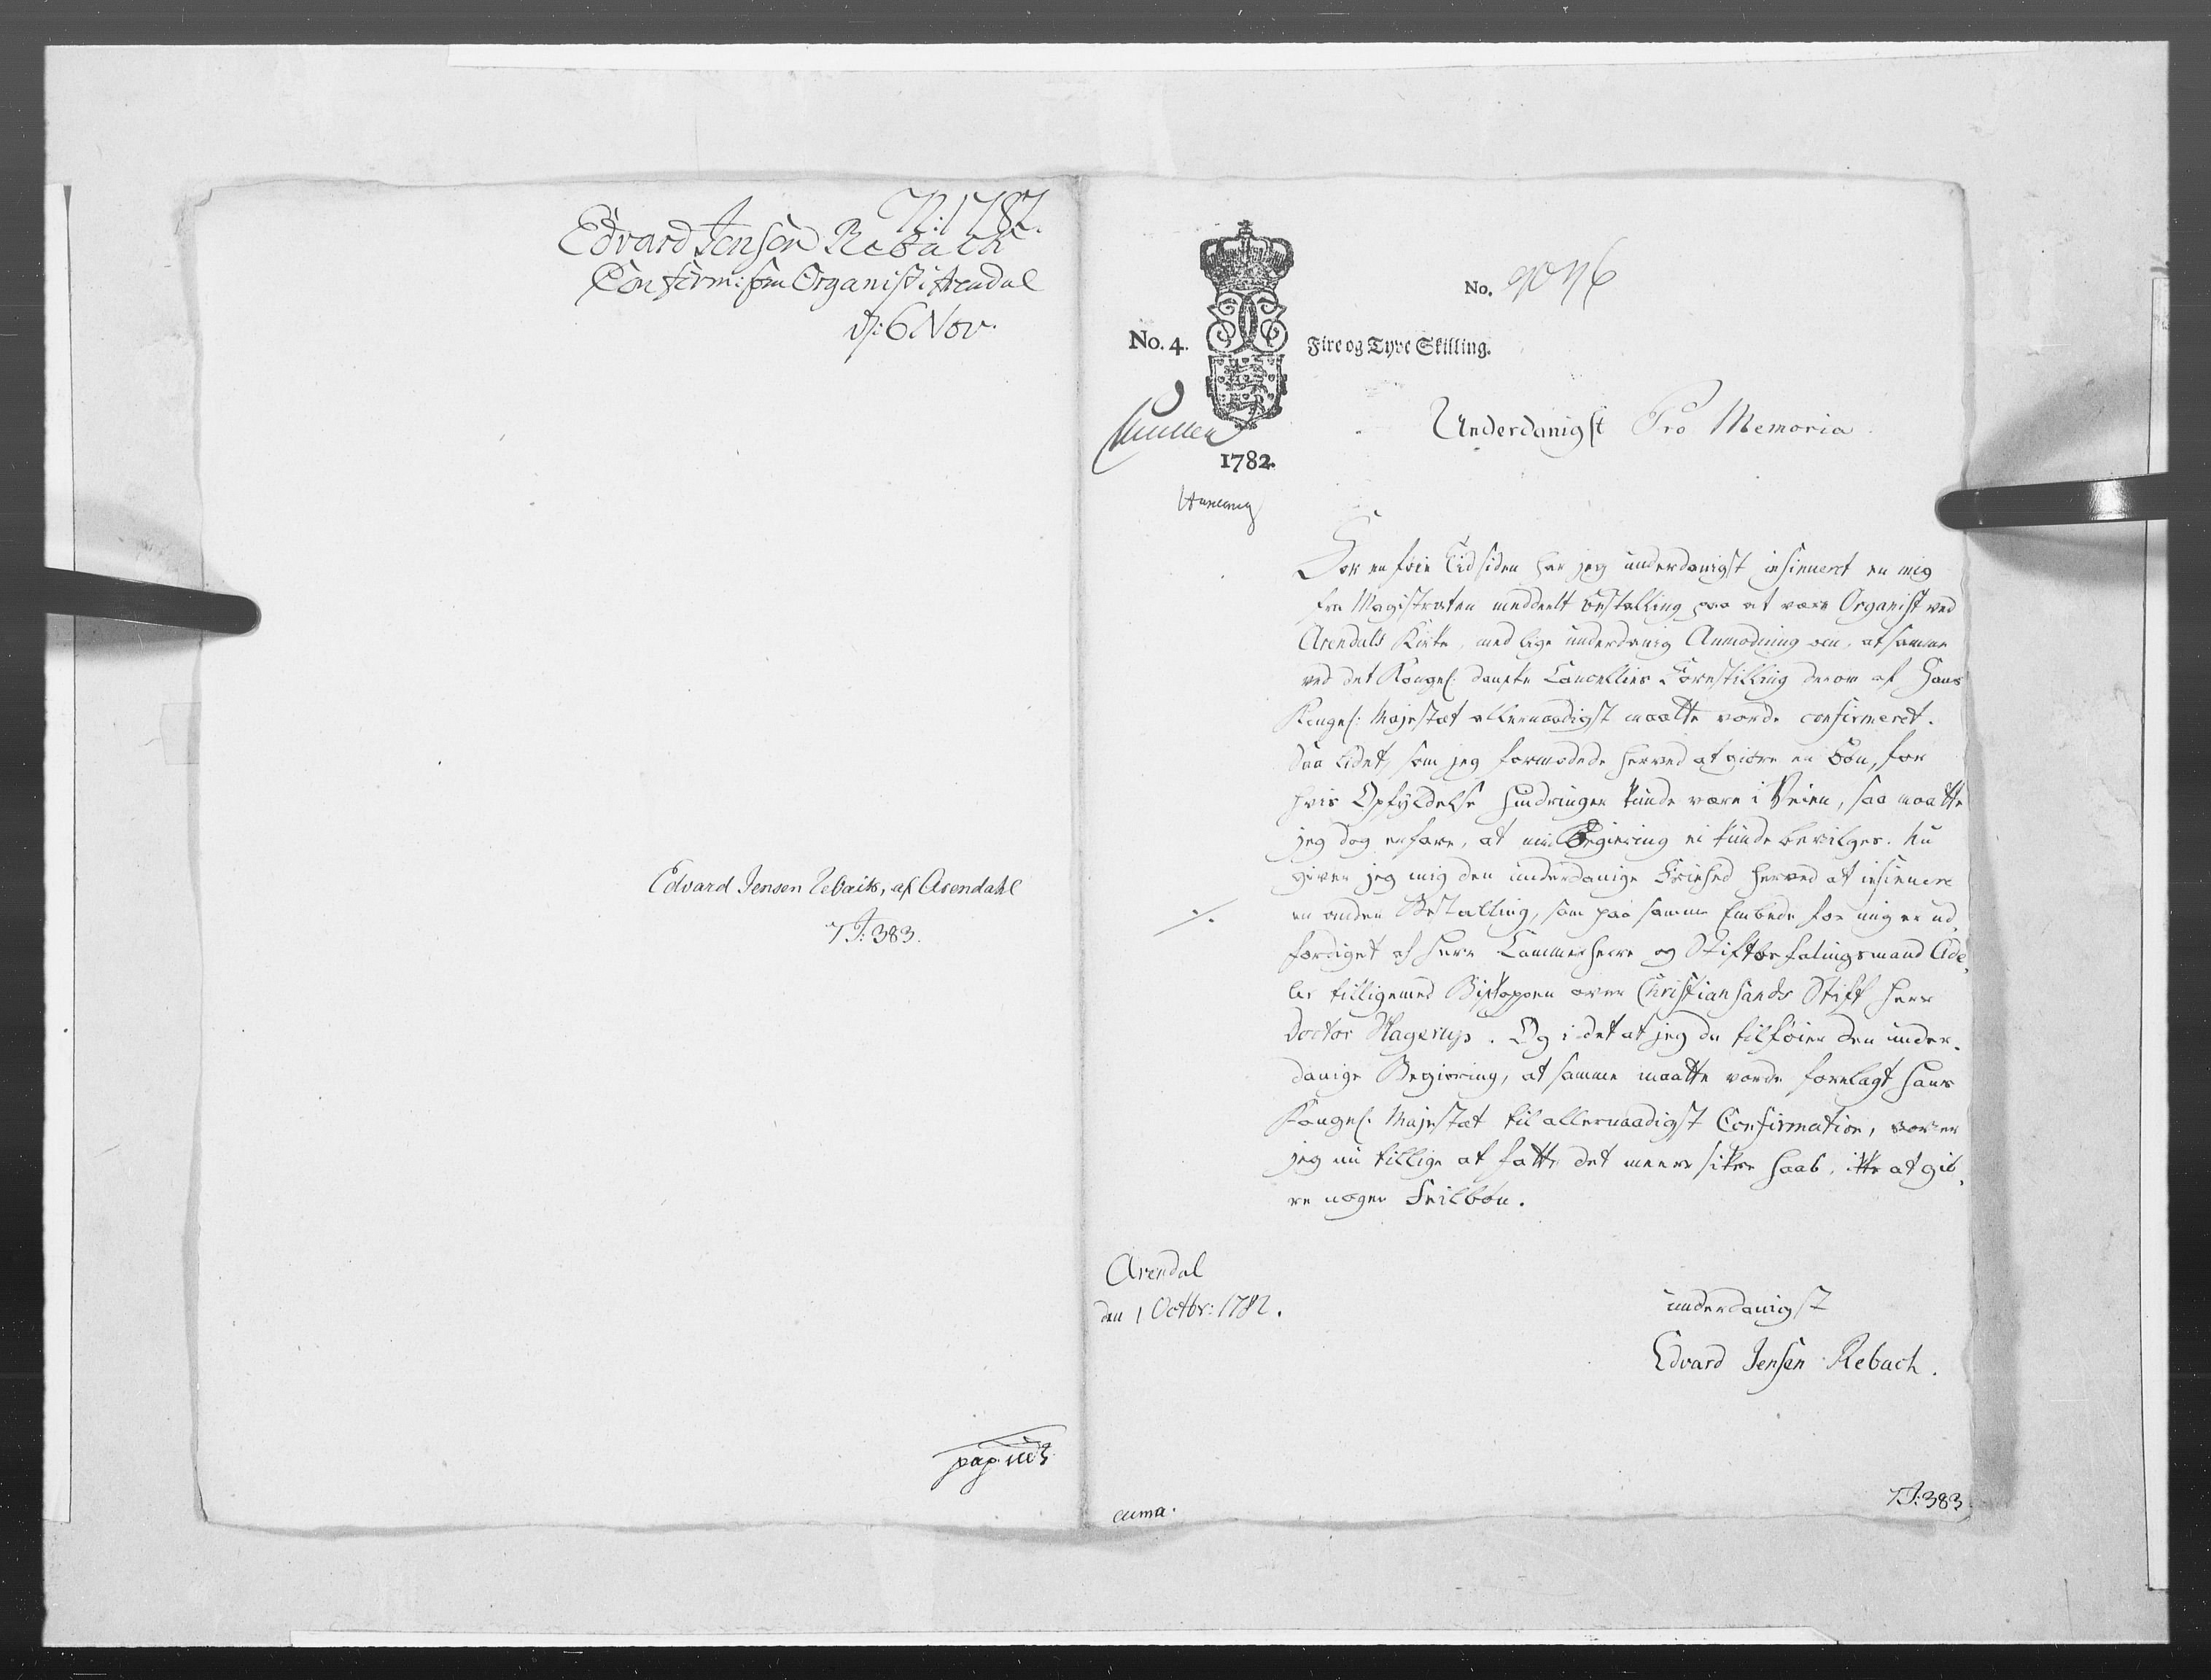 N: 1782.
Edvard Jensen Rebach
Confirm: som Organist i Arendal
d: 6 Nov.
Edvard Jensen Rebach, af Arendahl
7 J: 383.
No. 9046
No. 4. Fire og Tyve Skilling.
1782.
Underdanigst Pro Memoria
For en føie Tid siden har jeg underdanigst insinueret en mig
fra Magistraten meddeelt Bestalling paa at være Organist ved
Arendals Kirke, med lige underdanig Anmodning om, at samme
ved det Kongel: danske Cancellies Forestilling derom af Hans
Kongel: Majestæt allernaadigst maatte vorde confirmeret.
Saa lidet, som jeg formodede herved at giøre en Bøn, for
hvis Opfyldelse Hindringer kunde være i Veien, saa maatte
jeg dog erfare, at min Begiering ei kunde bevilges. Nu
giver jeg mig den underdanige Friehed herved at insinuere
en anden Bestalling, som paa samme Embede for mig er ud,
færdiget af Herr Cammerherre og Stiftbefalingsmand Ade,
ler tilligemed Biskoppen over Christiansands Stift Herr
Doctor Hagerup. Og i det at jeg da tilføier den under,
danige Begiering, at samme maatte vorde forelagt Hans
Kongel: Majestæt til allernaadigst Confirmation, vover
jeg nu tillige at fatte det meere sikre Haab, ikke at giø,
re nogen Feilbøn.
Arendal
den 1 Octbr: 1782.
underdanigst
Edvard Jensen Rebach.
7 J: 383.